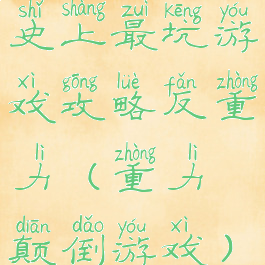 shǐ shàng zuì kēng yóu
史上最坑游
xì gōng lüè fǎn zhòng
戏攻略反重
lì zhòng lì
力(重力
diān dǎo yóu xì
颠倒游戏)